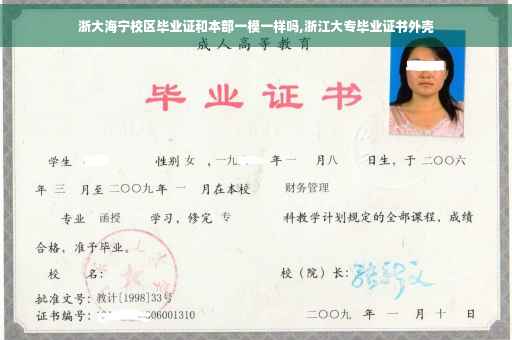 浙大海宁校区毕业证和本部一模一样吗,浙江大专毕业证书外壳
成人高等教育
毕业证书
学生 性别 女 ，一九 年 一 月 八 日生，于 二〇〇六
年 三 月至 二〇〇九 年 一 月在本校 财务管理
专业 函授 学习，修完 专 科教学计划规定的全部课程，成绩
合格，准予毕业。
校 名： 校（院）长：
批准文号：教计[1998]33号
证书编号： 06001310 二〇〇九 年 一 月 十 日